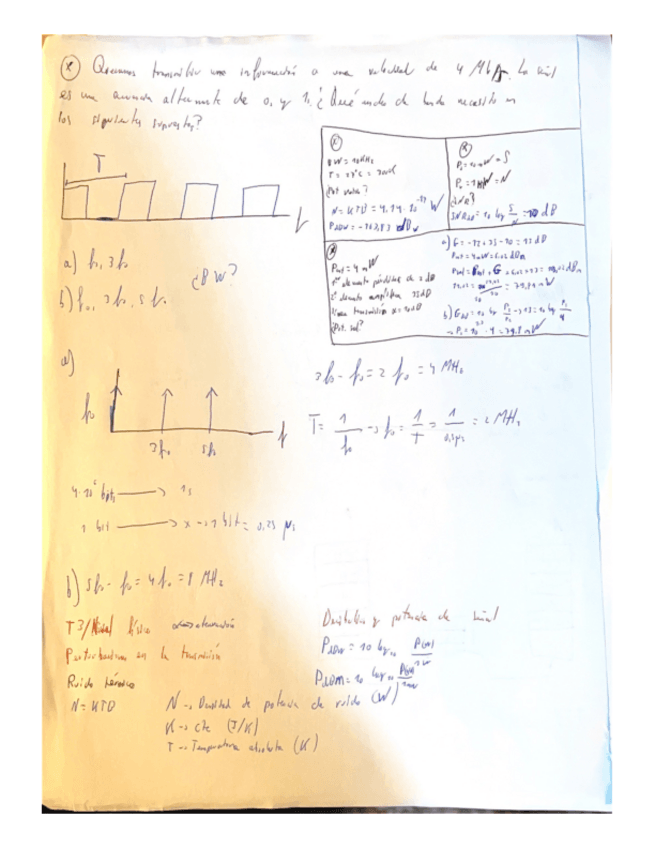 Queremos transmitir una información a una velocidad de 4 Mbps. La señal
es una acumada alternante de 0, y 1, ¿Qué ancho de banda necesito en
los siguientes supuestos?
T
t
a) f₀, 3f₀
b) f₀, 3f₀, 5f₀
¿BW?
BW = 10KHz
T = 27°C = 300K
N = KTB = 4,14·10⁻¹⁷ W
P_dBW = -163,83 dBw
P₀ = 10 mW = S
P₀ = 1 mW = N
¿SNR?
SNR_dB = 10 log S/N = 10 dB
P_ent = 4 mW
1er elemento pérdidas de 12 dB
2º elemento amplifica 35 dB
línea transmisión α = 10 dB
¿Pot. sal?
a) G = -12 + 35 - 10 = 13 dB
P_ent = 4 mW = 6,02 dBm
b) G_dB = 10 log P₂/P₁ → 13 = 10 log P₂/4
a)
f₀
3f₀
5f₀
f
3f₀ - f₀ = 2 f₀ = 4 MHz
T = 1/f₀ → f₀ = 1/T = 1/0,5μs = 2 MHz
4·10⁶ bits → 1s
1 bit → x → 1 bit = 0,25 μs
b) 5f₀ - f₀ = 4f₀ = 8 MHz
T3/Nivel físico α → atenuación
Perturbaciones en la transmisión
Ruido térmico
N = KTB
N → Densidad de potencia de ruido (W)
K → cte (J/K)
T → Temperatura absoluta (K)
Decibelios y potencia de señal
P_dBW = 10 log₁₀ P(W)/1W
P_dBm = 10 log₁₀ P(W)/1mW